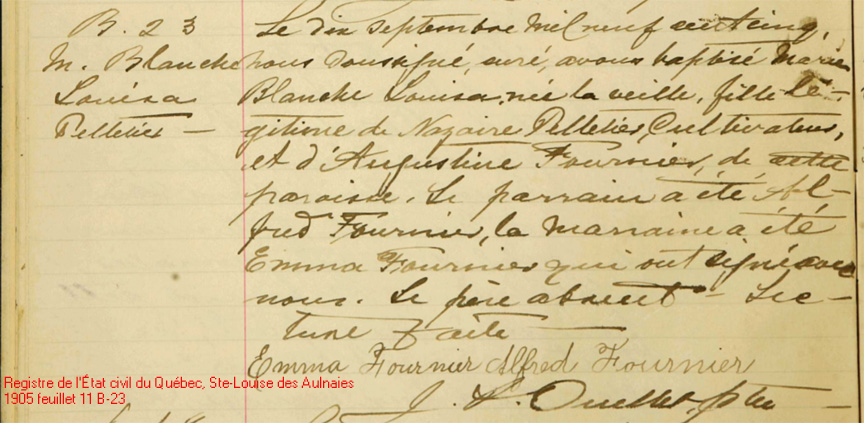 B. 23
M. Blanche
Louisa
Pelletier —
Le dix septembre mil neuf cent cinq,
nous soussigné, curé, avons baptisé Marie
Blanche Louisa, née la veille, fille lé-
gitime de Nazaire Pelletier, Cultivateur,
et d'Augustine Fournier, de cette
paroisse. Le parrain a été Al-
fred Fournier, la marraine a été
Emma Fournier qui ont signé avec
nous. Le père absent - Lec-
ture faite —
Emma Fournier Alfred Fournier
Ouellet, ptre —
Registre de l'État civil du Québec, Ste-Louise des Aulnaies
1905 feuillet 11 B-23